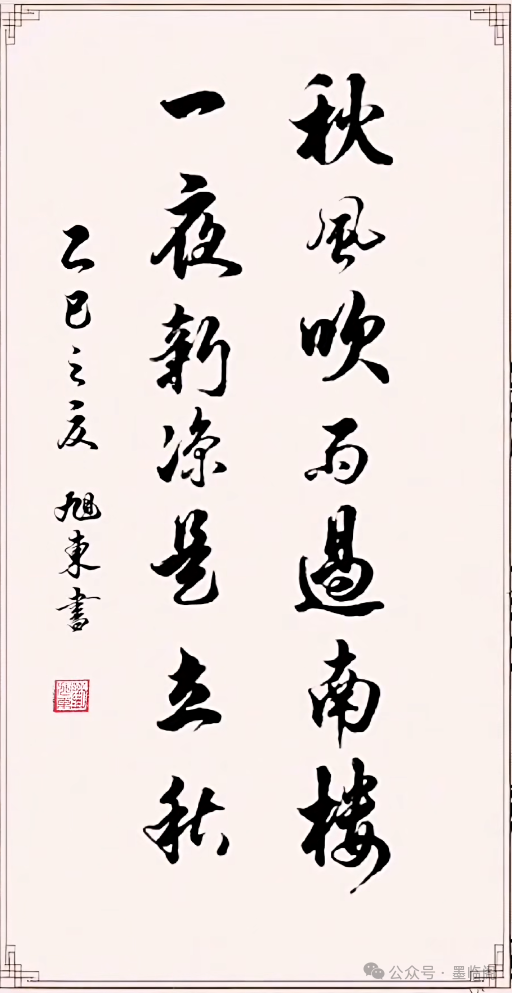 秋风吹雨過南楼
一夜新凉是立秋
乙巳之夏 旭東書
公众号·墨临阁